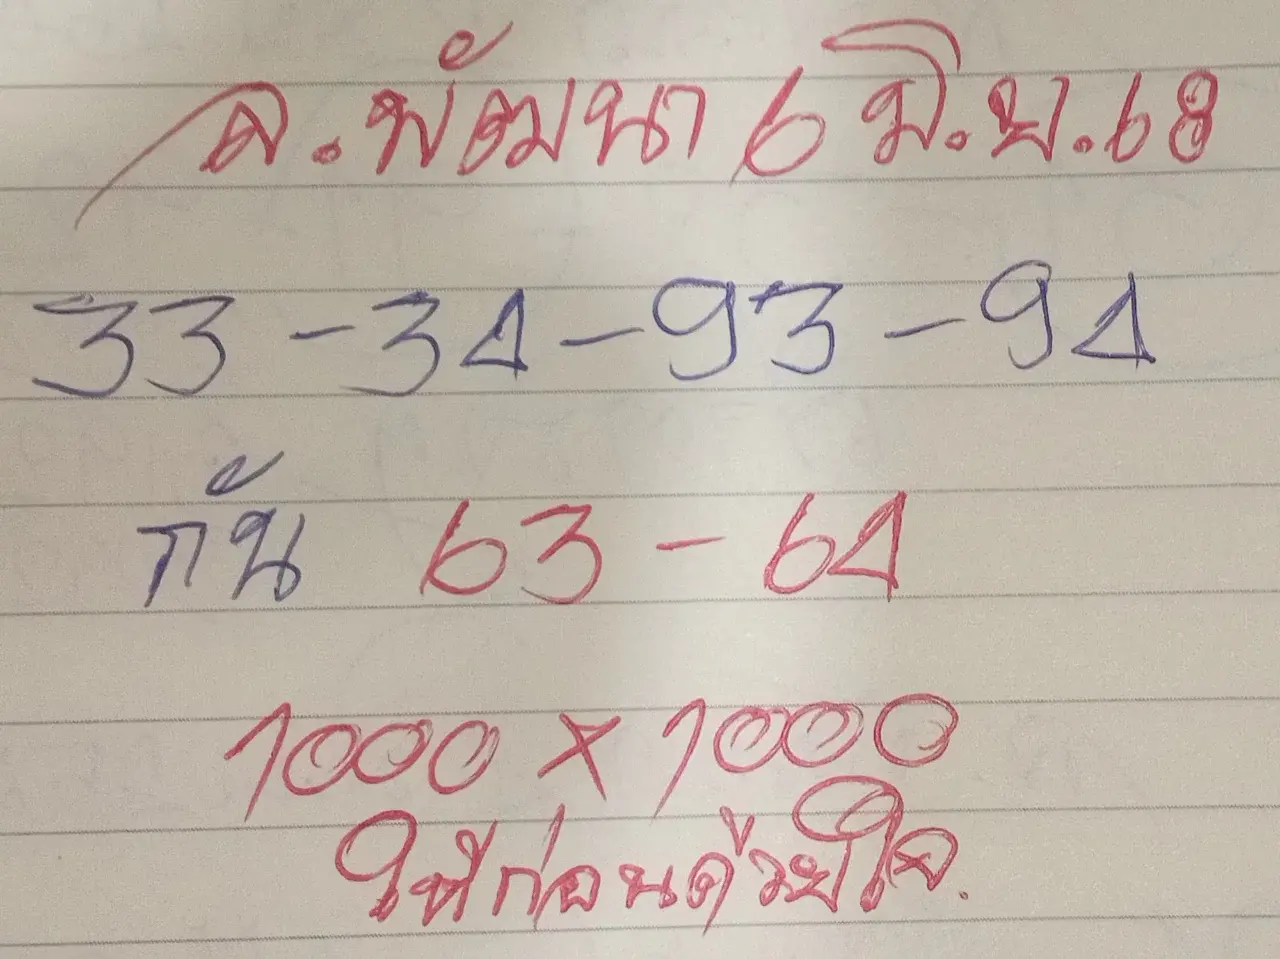 ล.พัฒนา 6 มิ.ย.68
33 - 34 - 93 - 94
กัน 63 - 64
1000 × 1000
ให้ก่อนด้วยใจ.